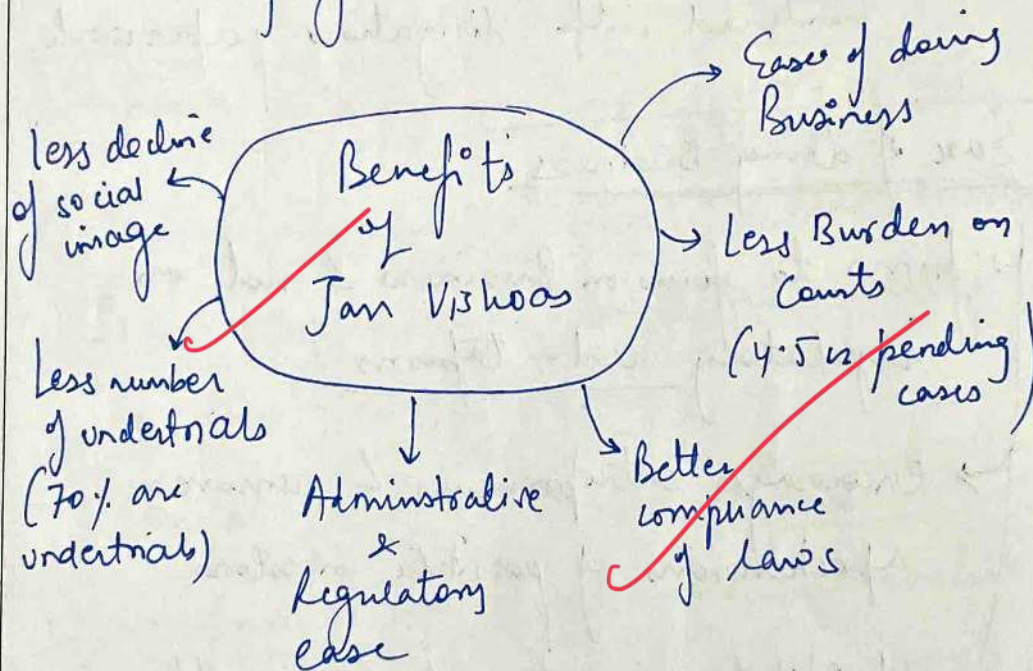 Benefits
of
Jan Vishwas
Ease of doing
Business
Less Burden on
Courts
(4.5 cr pending
cases)
Better
compliance
of laws
Administrative
&
Regulatory
ease
Less number
of undertrials
(70% are
undertrials)
less decline
of social
image